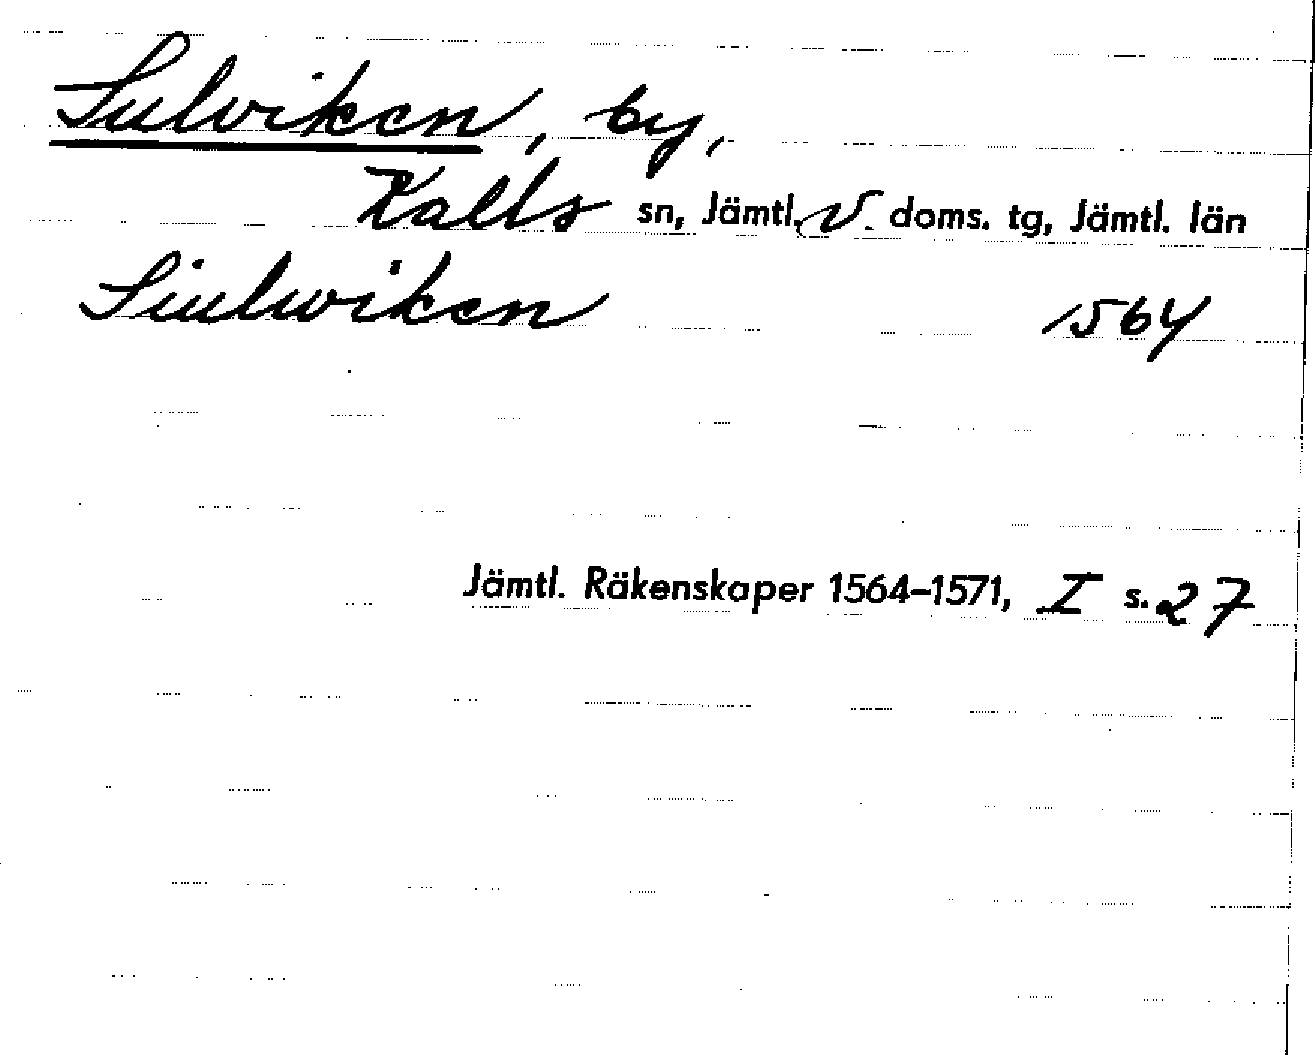 Sulviken, by,
Kalls sn, Jämtl. V. doms. tg, Jämtl. län
Siulwiken 1564
Jämtl. Räkenskaper 1564–1571, I s. 27